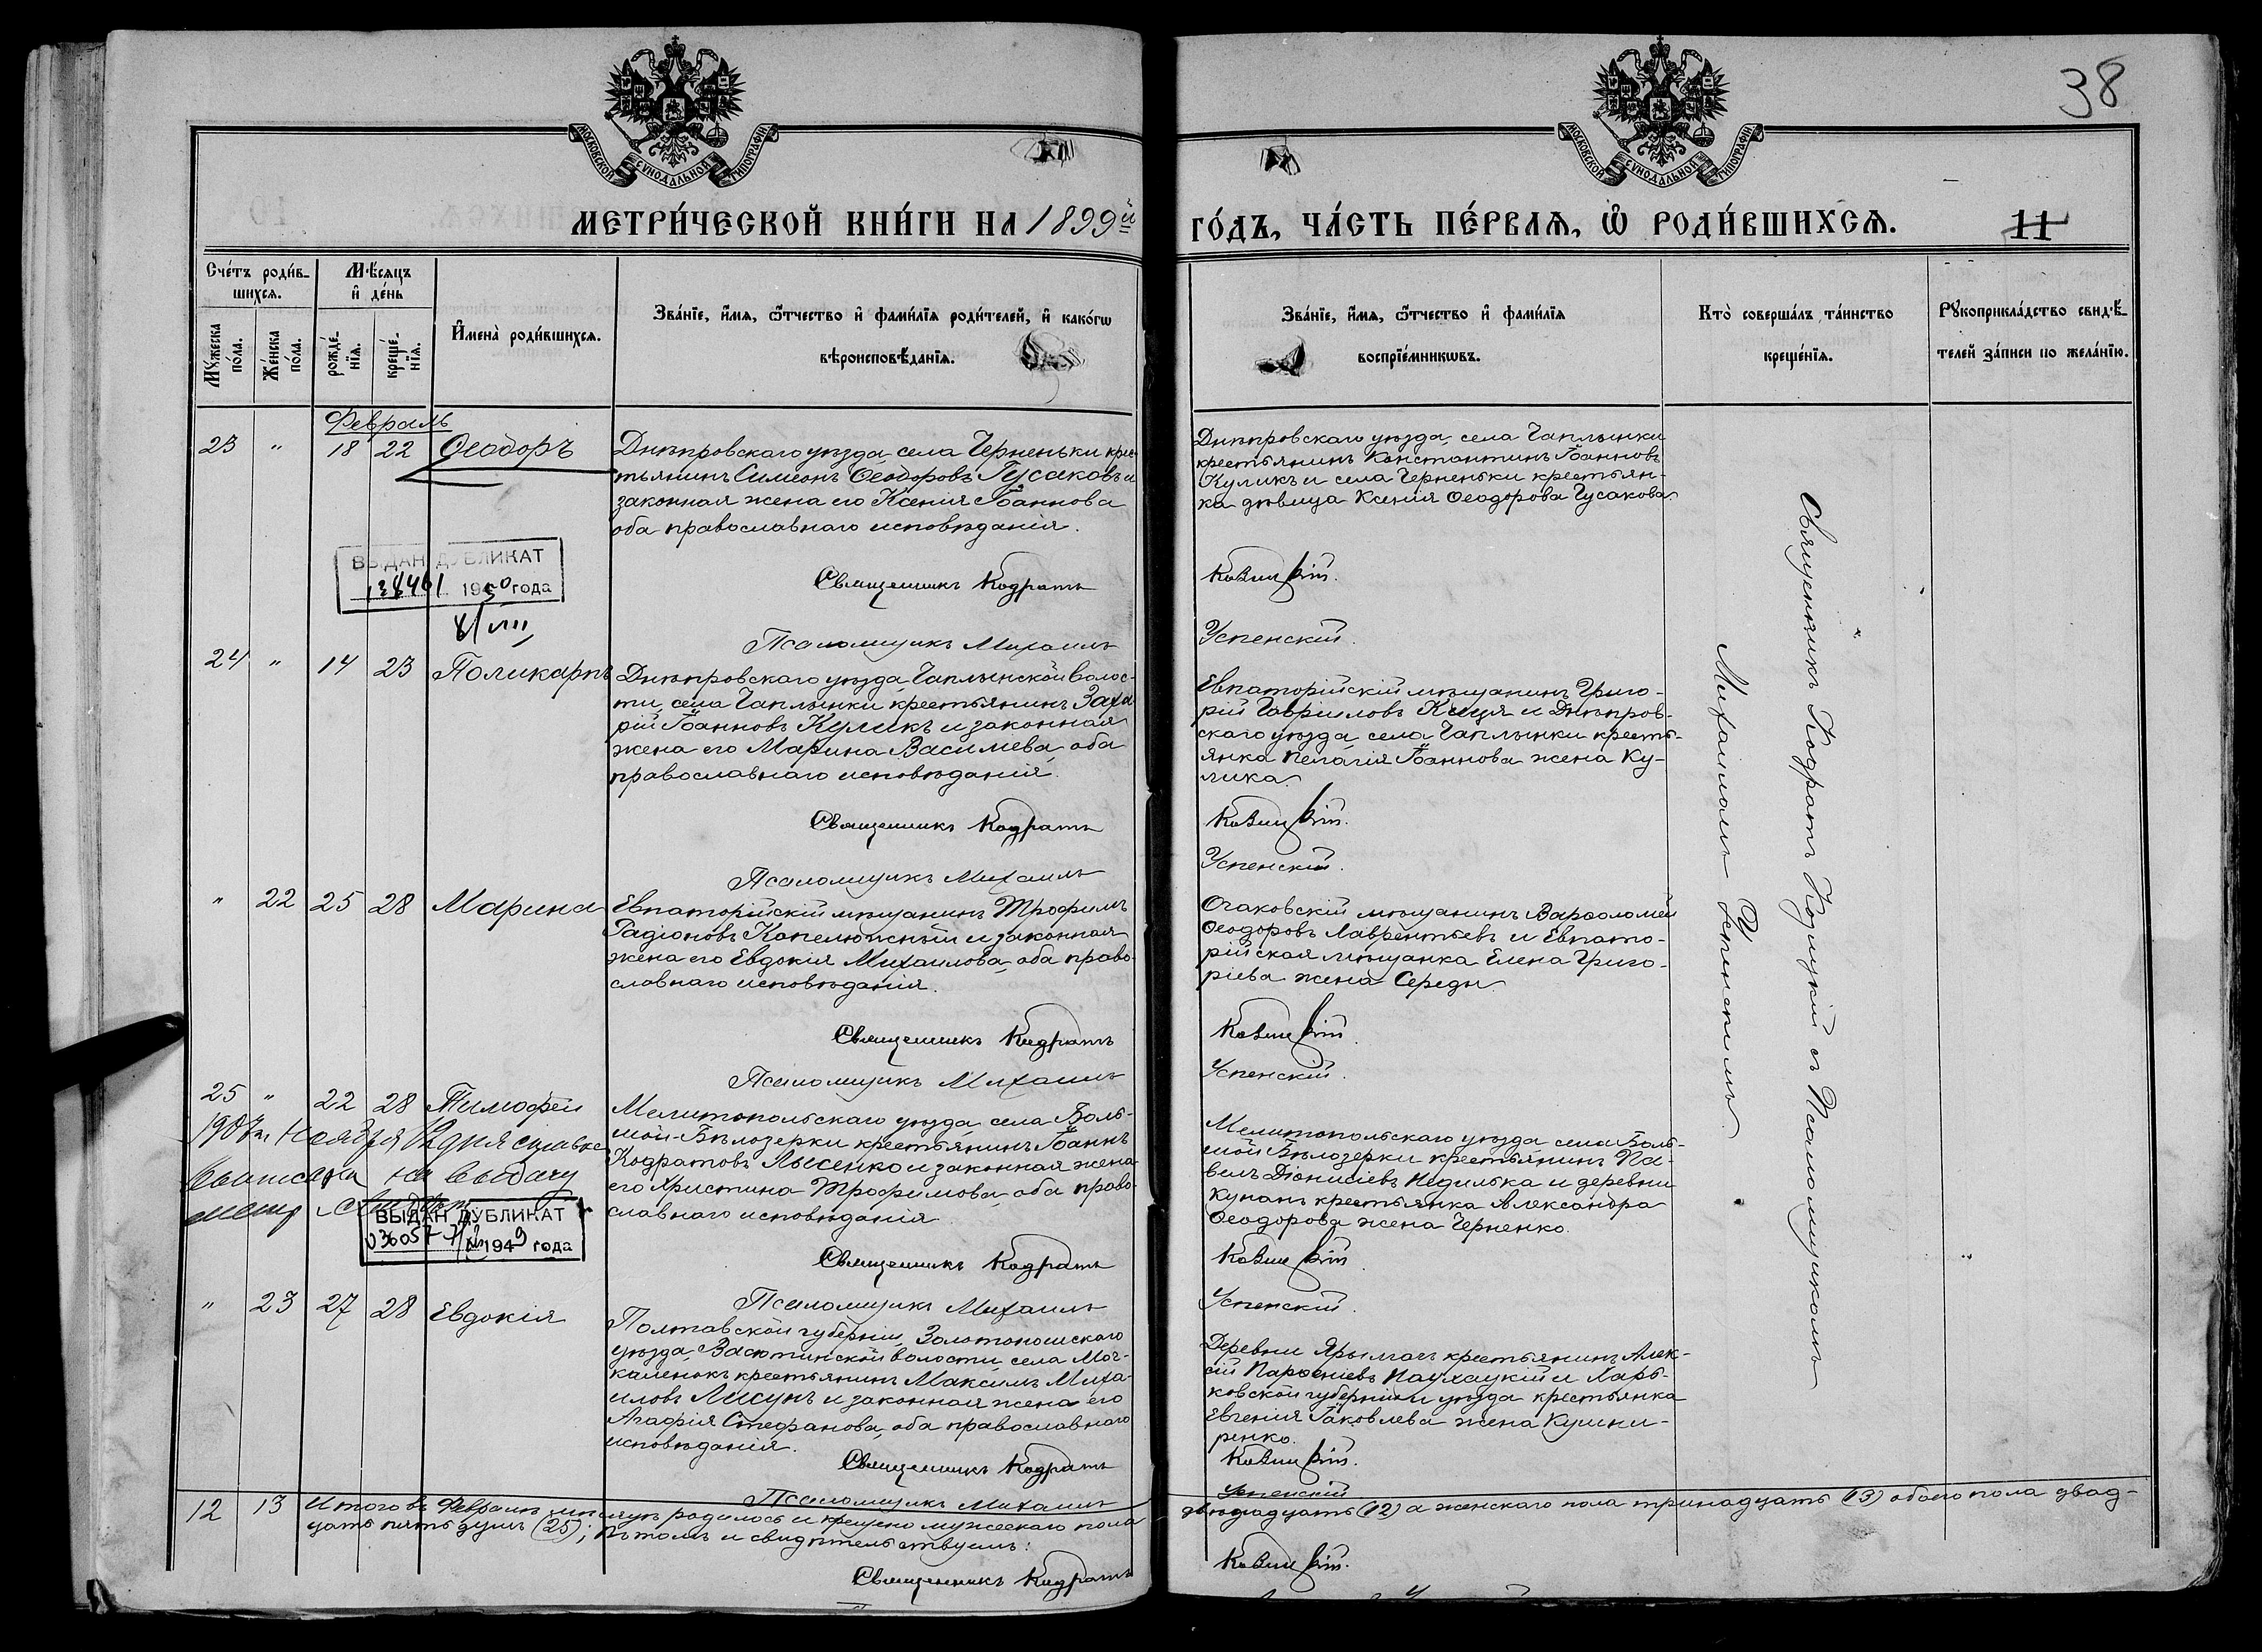 38
МОСКОВСКОЙ СѴНОДАЛЬНОЙ ТИПОГРАФІИ
МОСКОВСКОЙ СѴНОДАЛЬНОЙ ТИПОГРАФІИ
МЕТРИ́ЧЕСКОЙ КНИ́ГИ НА 1899й
ГО́ДЪ, ЧА́СТЬ ПЕ́РВАѦ, Ѽ РОДИ́ВШИХСѦ.
11
Сче́тъ роди́в-
шихсѧ.
Мꙋ́жеска
по́ла.
Же́нска
по́ла.
Мѣ́сѧцъ
и҆ де́нь
рожде́-
нїѧ.
креще́-
нїѧ.
И҆мена̀ роди́вшихсѧ.
Зва́нїе, и҆́мѧ, ѻ҆́тчество и҆ фами́лїѧ роди́телей, и҆ како́гѡ
вѣроисповѣ́данїѧ.
Зва́нїе, и҆́мѧ, ѻ҆́тчество и҆ фами́лїѧ
воспрїе́мникѡвъ.
Кто̀ соверша́лъ та́инство
креще́нїѧ.
Рꙋкоприкла́дство свидѣ́-
телей за́писи по жела́нїю.
Февраль
23 " 18 22 Ѳеодоръ
Днѣпровскаго уѣзда села Черненьки крес-
тьянинъ Симеонъ Ѳеодоровъ Гусаковъ и
законная жена его Ксенія Іоаннова
оба православнаго исповѣданія.
Священникъ Кодратъ
Псаломщикъ Михаилъ
Днѣпровскаго уѣзда села Чаплынки
крестьянинъ Константинъ Іоанновъ
Куликъ и села Черненьки крестьян-
ка дѣвица Ксенія Ѳеодорова Гусакова
Успенскій.
ВЫДАН ДУБЛИКАТ
1950 года
8/VIII
24 " 14 23 Поликарпъ
Днѣпровскаго уѣзда Чаплынской волос-
ти, села Чаплынки крестьянинъ Заха
рій Іоанновъ Куликъ и законная
жена его Марина Василиева, оба
православнаго исповѣданія.
Священникъ Кодратъ
Псаломщикъ Михаилъ
Евпаторійскій мѣщанинъ Григо-
рій Гавріиловъ Кица и Днѣпров-
скаго уѣзда села Чаплынки кресть-
янка Пелагія Іоаннова жена Ку-
лика.
Успенскій.
" 22 25 28 Марина
Евпаторійскій мѣщанинъ Трофимъ
Радіоновъ Капелюжный и законная
жена его Евдокія Михаилова, оба право-
славнаго исповѣданія.
Священникъ Кодратъ
Псаломщикъ Михаилъ
Очаковскій мѣщанинъ Варѳоломей
Ѳеодоровъ Лаврентьевъ и Евпато-
рійская мѣщанка Елена Григо-
ріева жена Середы.
Успенскій.
25 " 22 28 Тимофей
Мелитопольскаго уѣзда села Боль-
шой-Бѣлозерки крестьянинъ Іоаннъ
Кодратовъ Лысенко и законная жена
его Христина Трофимова, оба право-
славнаго исповѣданія
Священникъ Кодратъ
Псаломщикъ Михаилъ
Мелитопольскаго уѣзда села Боль-
шой Бѣлозерки крестьянинъ Па-
велъ Діонисіевъ Недилька и деревни
Купанъ крестьянка Александра
Ѳеодорова жена Черненко.
Успенскій.
ноября дня
выписана на выдачу
ВЫДАН ДУБЛИКАТ
1949 года
" 23 27 28 Евдокія
Полтавской губерніи, Золотоношскаго
уѣзда, Васютинской волости, села Моч-
каленокъ крестьянинъ Максимъ Миха-
иловъ Лисунъ и законная жена его
Агафія Стефанова, оба православнаго
исповѣданія.
Священникъ Кодратъ
Псаломщикъ Михаилъ
Деревни Ярылгачъ крестьянинъ Алек-
сій Парѳеніевъ и Харь-
ковской губерніи и уѣзда крестьянка
Евгенія Іаковлева жена Кушни-
ренко.
Успенскій
Священникъ Кодратъ съ Псаломщикомъ
Михаиломъ Успенскимъ.
12 13 Итого въ Февралѣ мѣсяцѣ родилось и крещено мужескаго пола двѣнадцать (12) а женскаго пола тринадцать (13) обоего пола двад-
цать пять душъ (25); въ томъ и свидѣтельствуемъ:
Священникъ Кодратъ